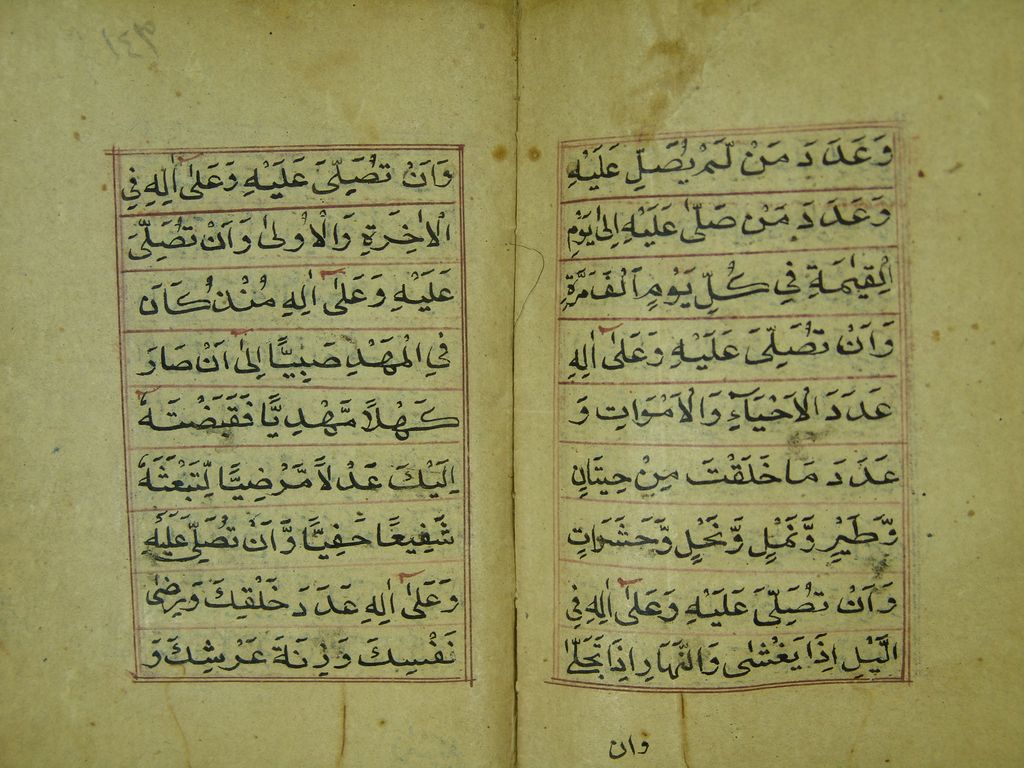 وَعَدَدَ مَنْ لَّمْ يُصَلِّ عَلَيْهِ
وَعَدَدَ مَنْ صَلّٰى عَلَيْهِ اِلٰى يَوْمِ
الْقِيٰمَةِ فِي كُلِّ يَوْمٍ اَلْفَ مَرَّةٍ
وَاَنْ تُصَلِّيَ عَلَيْهِ وَعَلٰٓى اٰلِهِ
عَدَدَ الْاَحْيَآءِ وَالْاَمْوَاتِ وَ
عَدَدَ مَا خَلَقْتَ مِنْ حِيتَانٍ
وَّطَيْرٍ وَّنَمْلٍ وَّنَحْلٍ وَّحَشَرَاتٍ
وَاَنْ تُصَلِّيَ عَلَيْهِ وَعَلٰٓى اٰلِهِ فِي
الَّيْلِ اِذَا يَغْشٰى وَالنَّهَارِ اِذَا تَجَلّٰى
وان
وَاَنْ تُصَلِّيَ عَلَيْهِ وَعَلٰٓى اٰلِهِ فِي
الْاٰخِرَةِ وَالْاُولٰى وَاَنْ تُصَلِّيَ
عَلَيْهِ وَعَلٰٓى اٰلِهِ مُنْذُ كَانَ
فِي الْمَهْدِ صَبِيًّا اِلٰٓى اَنْ صَارَ
كَهْلًا مَّهْدِيًّا فَقَبَضْتَهٗٓ
اِلَيْكَ عَدْلًا مَّرْضِيًّا لِّتَبْعَثَهٗ
شَفِيعًا حَفِيًّا وَّاَنْ تُصَلِّيَ عَلَيْهِ
وَعَلٰٓى اٰلِهِ عَدَدَ خَلْقِكَ وَرِضٰى
نَفْسِكَ وَزِنَةَ عَرْشِكَ وَ